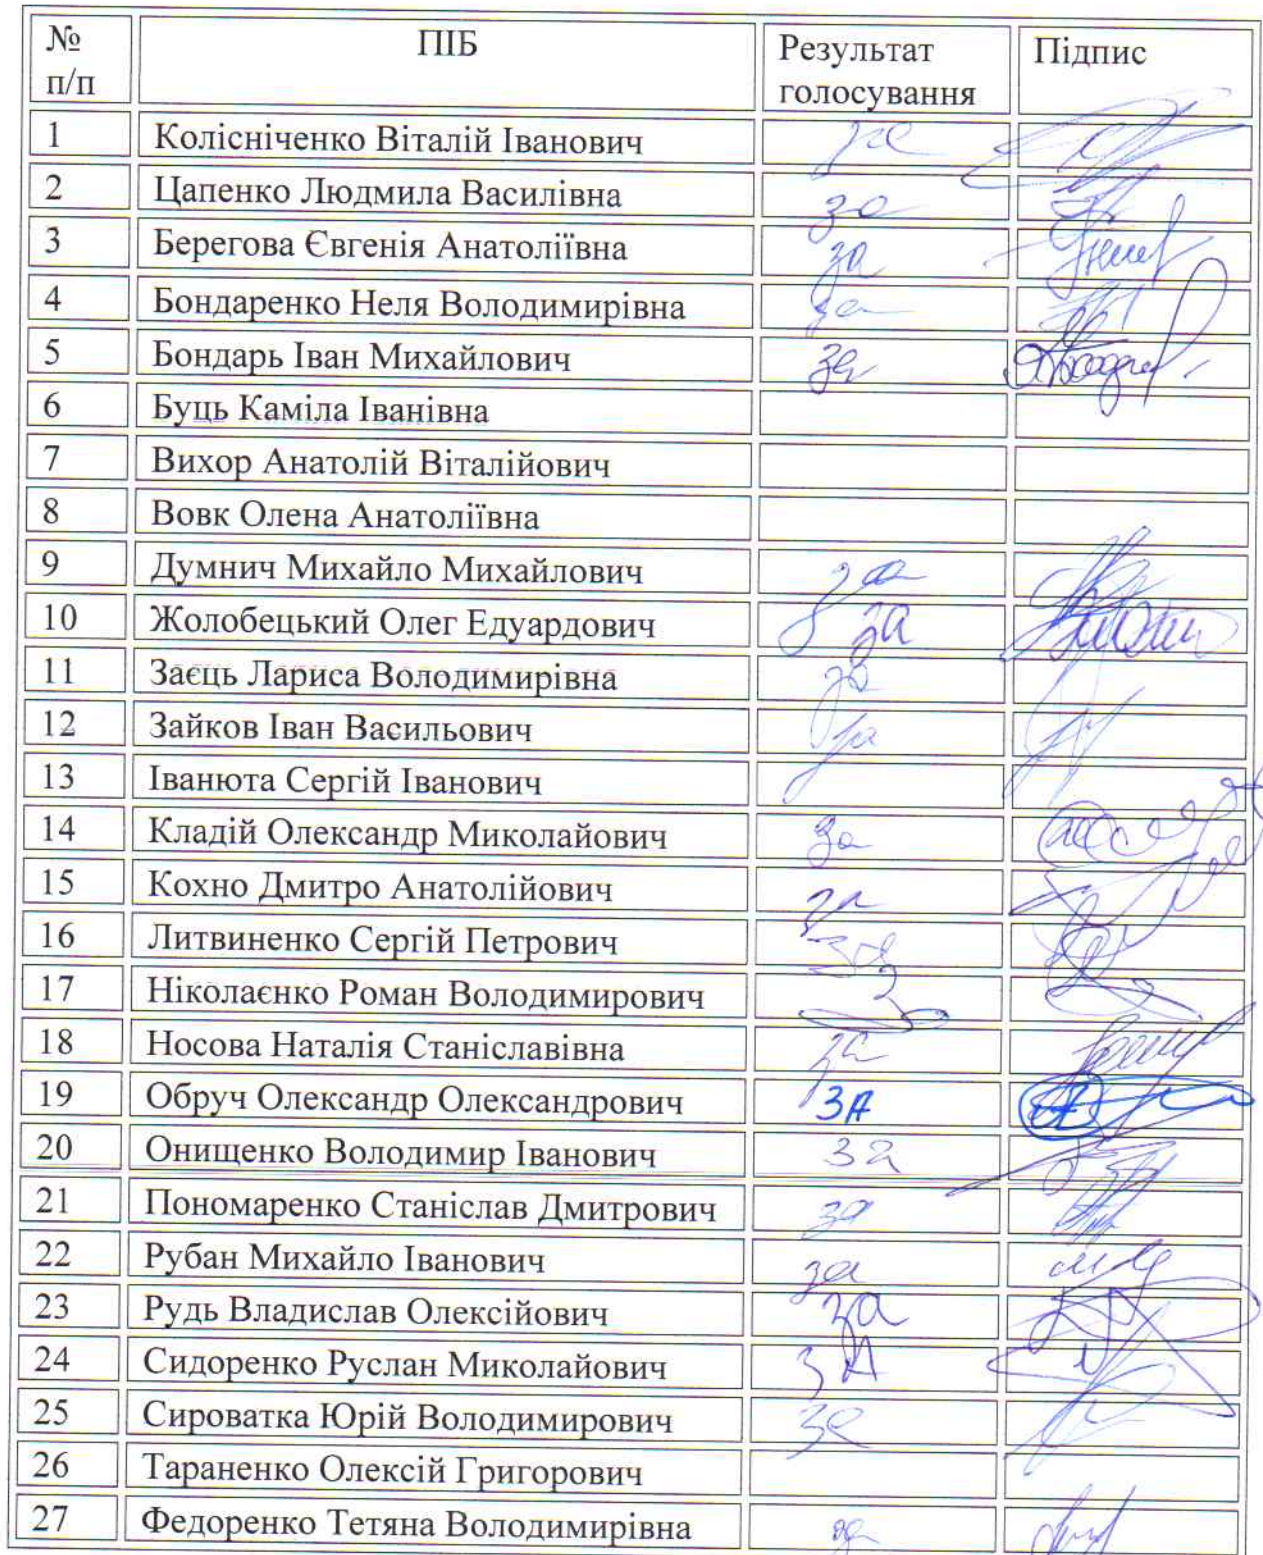 № п/п ПІБ Результат голосування Підпис
1 Колісніченко Віталій Іванович за
2 Цапенко Людмила Василівна за
3 Берегова Євгенія Анатоліївна за
4 Бондаренко Неля Володимирівна за
5 Бондарь Іван Михайлович за
6 Буць Каміла Іванівна
7 Вихор Анатолій Віталійович
8 Вовк Олена Анатоліївна
9 Думнич Михайло Михайлович за
10 Жолобецький Олег Едуардович за
11 Заєць Лариса Володимирівна за
12 Зайков Іван Васильович за
13 Іванюта Сергій Іванович
14 Кладій Олександр Миколайович за
15 Кохно Дмитро Анатолійович за
16 Литвиненко Сергій Петрович за
17 Ніколаєнко Роман Володимирович
18 Носова Наталія Станіславівна за
19 Обруч Олександр Олександрович ЗА
20 Онищенко Володимир Іванович за
21 Пономаренко Станіслав Дмитрович за
22 Рубан Михайло Іванович за
23 Рудь Владислав Олексійович за
24 Сидоренко Руслан Миколайович зА
25 Сироватка Юрій Володимирович за
26 Тараненко Олексій Григорович
27 Федоренко Тетяна Володимирівна за